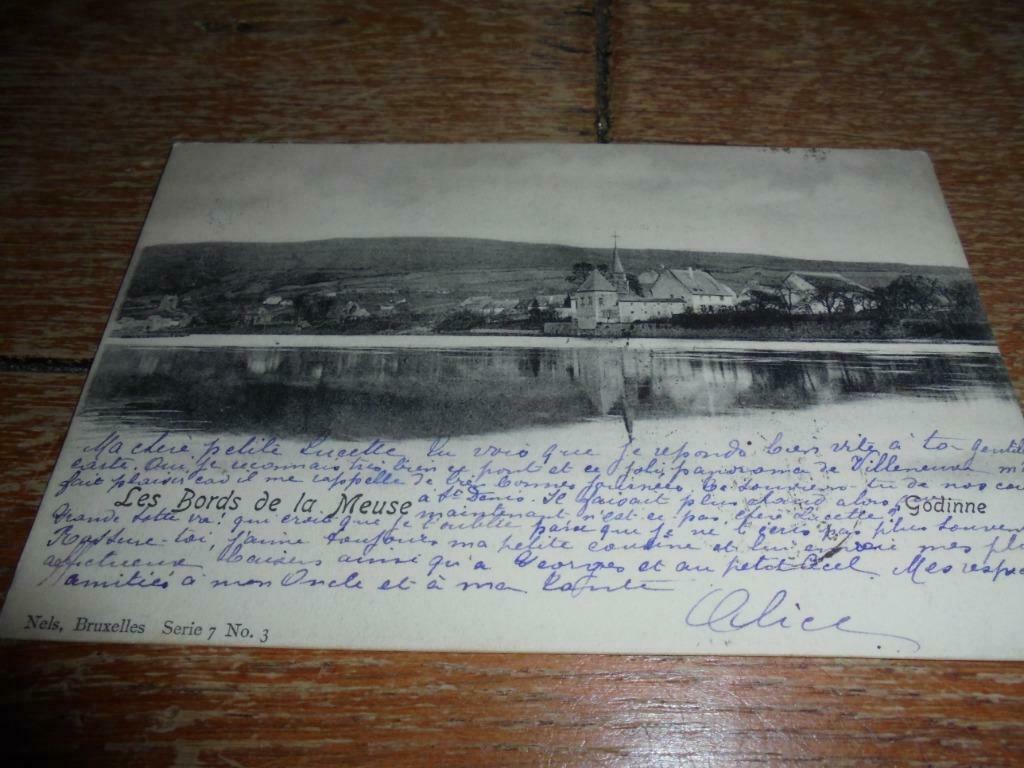 Ma chère petite Lucette tu vois que je réponds bien vite à ta gentil
carte. Oui, je reconnais très bien ce pont et ce joli panorama de Villeneuve
fait plaisir car il me rappelle de très bonnes journées. Te souviens tu de nos
Les Bords de la Meuse
à St Denis. Il faisait plus chaud alors
Godinne
Grande sotte va! qui crois que je t'oublie parce que je ne t'écris pas plus souvent
maintenant n'est ce pas, chère
Rassure-toi, j'aime toujours ma petite cousine et lui envoie mes plus
affectueux baisers ainsi qu'à Georges et au petit Mes respec
amitiés à mon Oncle et à ma tante
Alice
Nels, Bruxelles Serie 7 No. 3